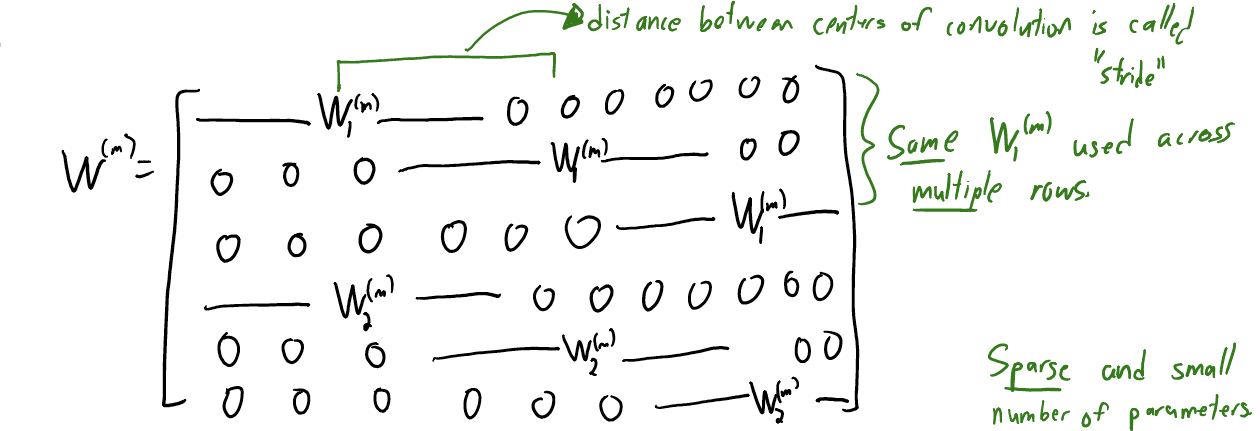 distance between centers of convolution is called
"stride"
W^(m) = [ —— W_1^(m) —— 0 0 0 0 0 0 0
0 0 0 —— W_1^(m) —— 0 0
0 0 0 0 0 0 —— W_1^(m) ——
—— W_2^(m) —— 0 0 0 0 0 0 0
0 0 0 —— W_2^(m) —— 0 0
0 0 0 0 0 0 —— W_2^(m) — ]
} Same W_1^(m) used across
multiple rows.
Sparse and small
number of parameters